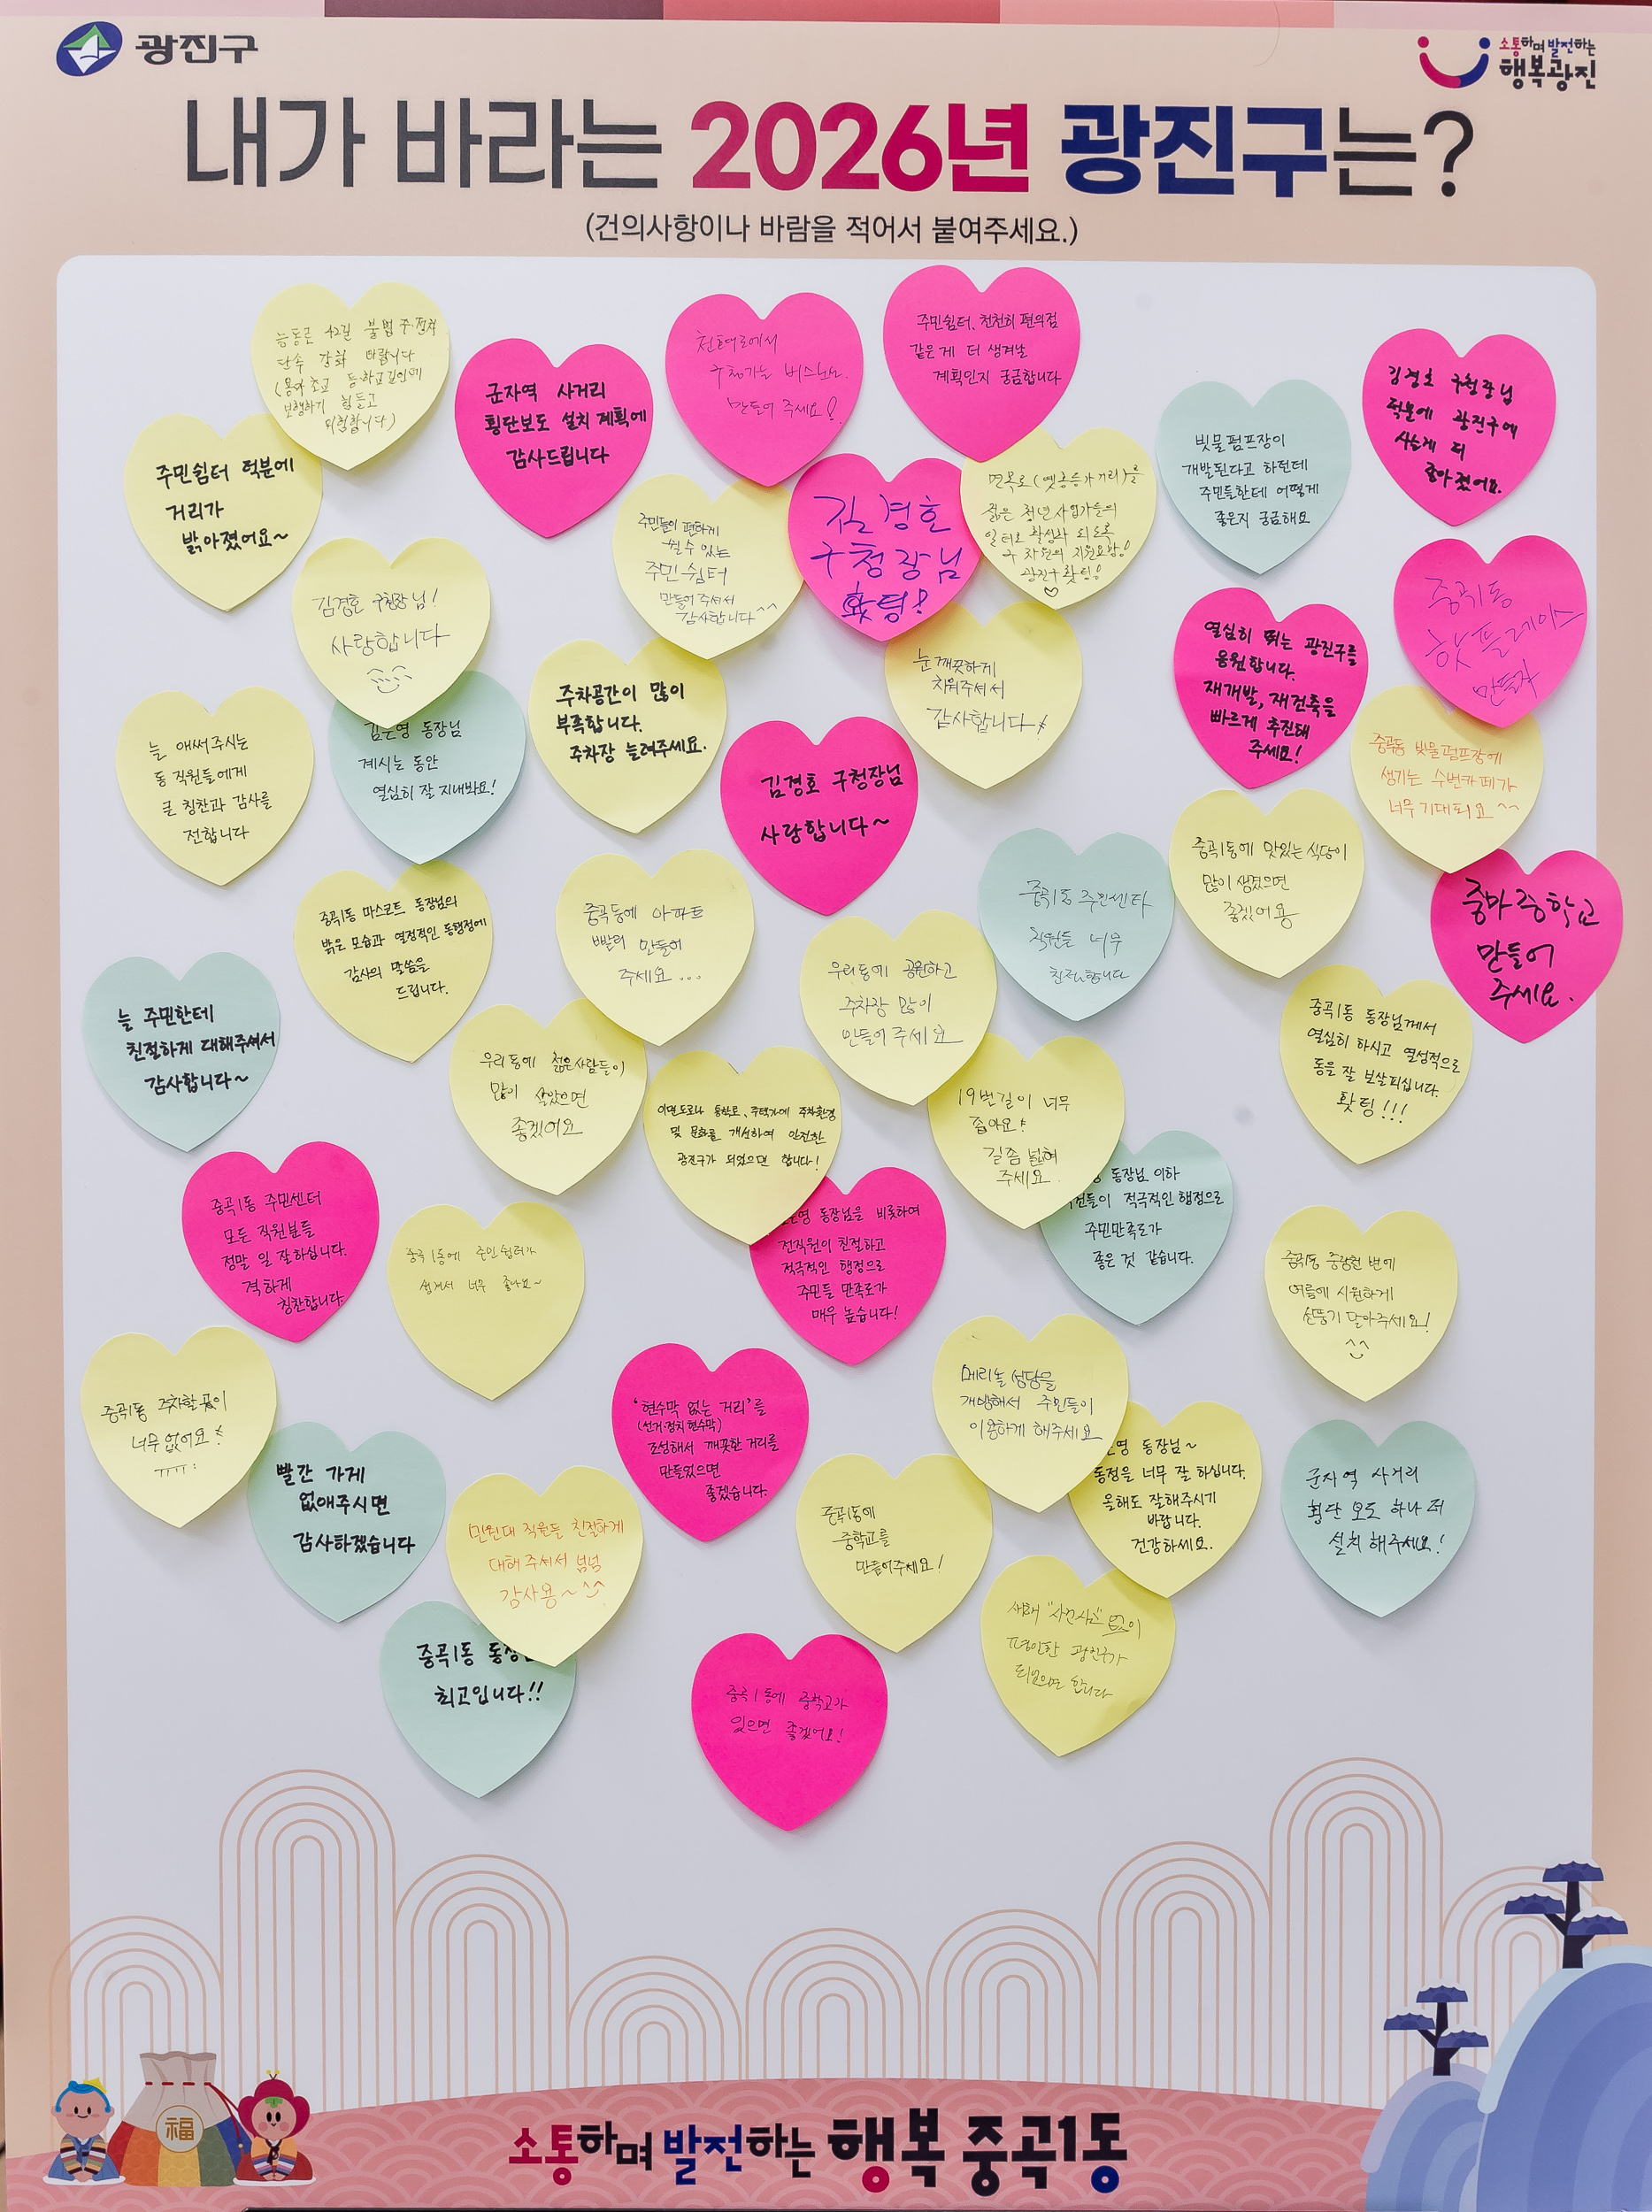 광진구
소통하며 발전하는
행복광진
내가 바라는 2026년 광진구는?
(건의사항이나 바람을 적어서 붙여주세요.)
능동로 42길 불법 주·정차
단속 강화 바랍니다
(용마초교 등·하교길인데
보행하기 힘들고
위험합니다)
군자역 사거리
횡단보도 설치 계획에
감사드립니다
천호대로에서
구청가는 버스노선
만들어 주세요!
주민쉼터, 천천히 편의점
같은 게 더 생겨날
계획인지 궁금합니다
김경호 구청장님
덕분에 광진구에
사는게 더
좋아졌어요.
빗물펌프장이
개발된다고 하던데
주민들한테 어떻게
좋은지 궁금해요
주민쉼터 덕분에
거리가
밝아졌어요~
주민들이 편하게
쉴 수 있는
주민 쉼터
만들어주셔서
감사합니다^^
김경호
구청장님
홧팅!
면목로(옛 공등가거리)를
젊은 청년사업가들의
일터로 활성화 되도록
구 차원의 지원요함!
광진구 홧팅!
김경호 구청장님!
사랑합니다
중곡1동
핫플레이스
만들자
열심히 뛰는 광진구를
응원합니다.
재개발, 재건축을
빠르게 추진해
주세요!
눈 깨끗하게
치워주셔서
감사합니다!
주차공간이 많이
부족합니다.
주차장 늘려주세요.
김은영 동장님
계시는 동안
열심히 잘 지내봐요!
늘 애써주시는
동 직원들에게
큰 칭찬과 감사를
전합니다
김경호 구청장님
사랑합니다~
중곡동 빗물펌프장에
생기는 수변카페가
너무 기대되요^^
중곡1동에 맛있는 식당이
많이 생겼으면
좋겠어용
중마중학교
만들어
주세요.
중곡1동 마스코트 동장님의
밝은 모습과 열정적인 동행정에
감사의 말씀을
드립니다.
중곡동에 아파트
빨리 만들어
주세요...
중곡1동 주민센타
직원들 너무
친절합니다
우리동에 공원하고
주차장 많이
만들어 주세요
늘 주민한테
친절하게 대해주셔서
감사합니다~
중곡1동 동장님께서
열심히 하시고 열성적으로
동을 잘 보살피십니다.
홧팅!!!
우리동에 젊은사람들이
많이 살았으면
좋겠어요
이면도로나 통학로, 주택가에 주차환경
및 문화를 개선하여 안전한
광진구가 되었으면 합니다!
19번길이 너무
좁아요!
길좀 넓혀
주세요
동장님 이하
직원들이 적극적인 행정으로
주민만족도가
좋은 것 같습니다.
중곡1동 주민센터
모든 직원분들
정말 일 잘하십니다.
격하게
칭찬합니다.
중곡1동에 주민쉼터가
생겨서 너무 좋아요~
은영 동장님을 비롯하여
전직원이 친절하고
적극적인 행정으로
주민들 만족도가
매우 높습니다!
중곡1동 중랑천 변에
여름에 시원하게
선풍기 달아주세요!
중곡1동 주차할곳이
너무 없어요!
ㅠㅠ
빨간 가게
없애주시면
감사하겠습니다
'현수막 없는 거리'를
(선거·정치 현수막)
조성해서 깨끗한 거리를
만들었으면
좋겠습니다.
메리놀 성당을
개방해서 주민들이
이용하게 해주세요
은영 동장님~
동정을 너무 잘 하십니다.
올해도 잘해주시기
바랍니다.
건강하세요.
군자역 사거리
횡단보도 하나 더
설치 해주세요!
민원대 직원들 친절하게
대해 주셔서 넘넘
감사용~^^
중곡1동에
중학교를
만들어주세요!
새해 "사건사고" 없이
평안한 광진구가
되었으면 합니다
중곡1동 동장
최고입니다!!
중곡1동에 중학교가
있으면 좋겠어요!
福
소통하며 발전하는 행복 중곡1동